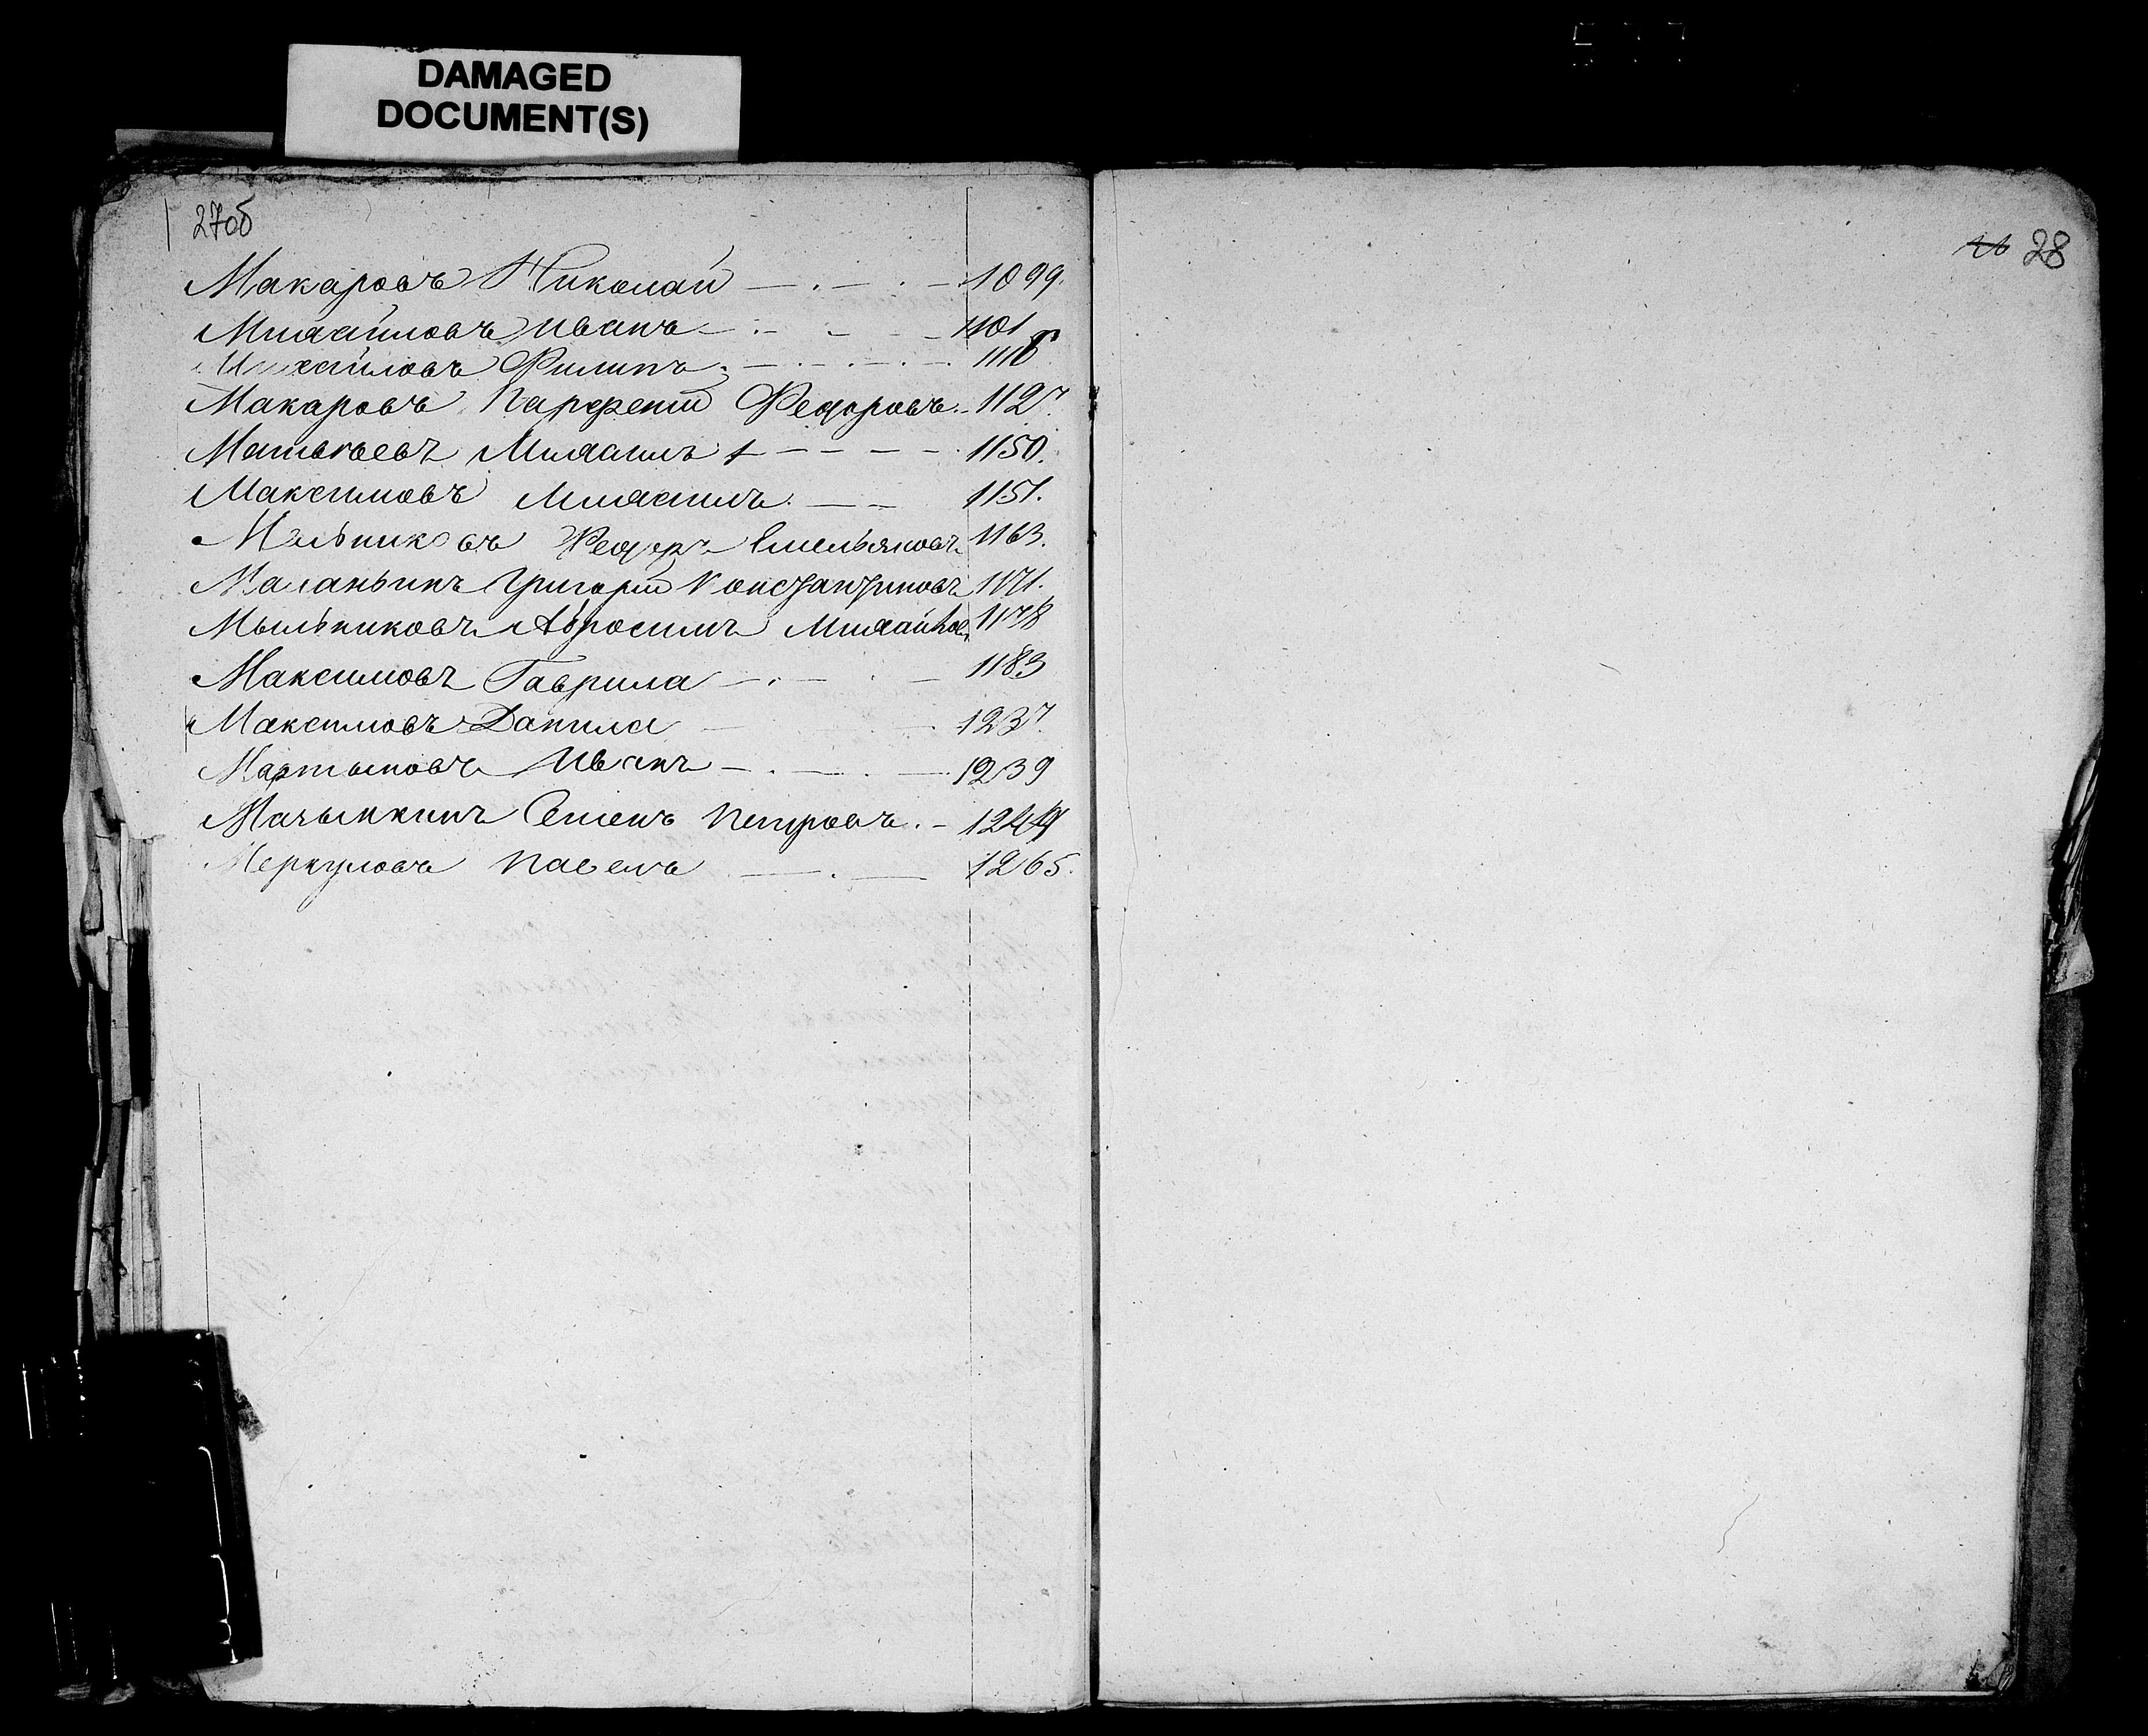 DAMAGED
DOCUMENT(S)
27об
28
Макаровъ Николай 1099.
Михайловъ Иванъ 1101
Михайловъ Филипъ
Макаровъ Парфентій Федоровъ 1127.
Матвѣевъ Михаилъ 1150.
Максимовъ Михаилъ 1151.
Мельниковъ Федоръ Емельяновъ 1163.
Маланьинъ Григорій Константиновъ 1171.
Мыльниковъ Абросимъ Михайлов 1178
Максимовъ Гаврила 1183
Максимовъ Данила 1237.
Мартыновъ Иванъ 1239
Семенъ Петровъ 1244
Меркуловъ Павелъ 1265.